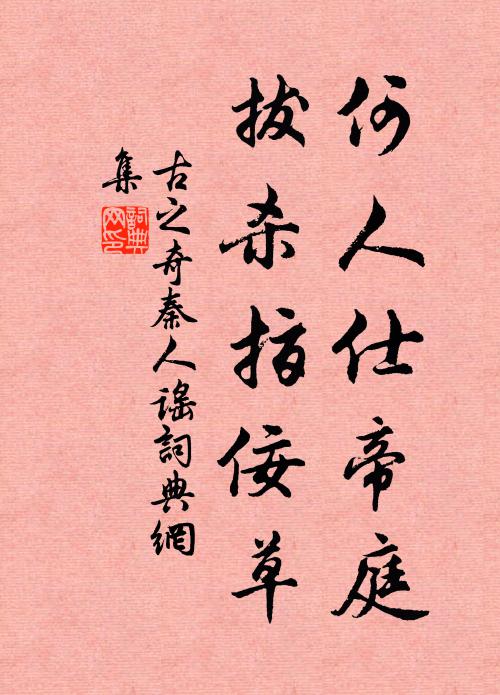 何人仕帝庭
拔杀指佞草
古之奇秦人谣詞典網
集
詞典
网印